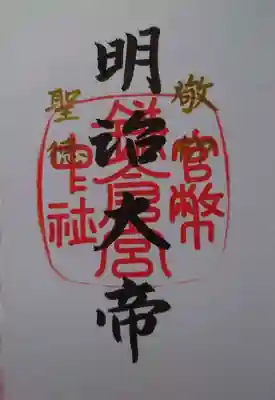 敬
明治大帝
聖徳
官幣
中社
鎌倉宮